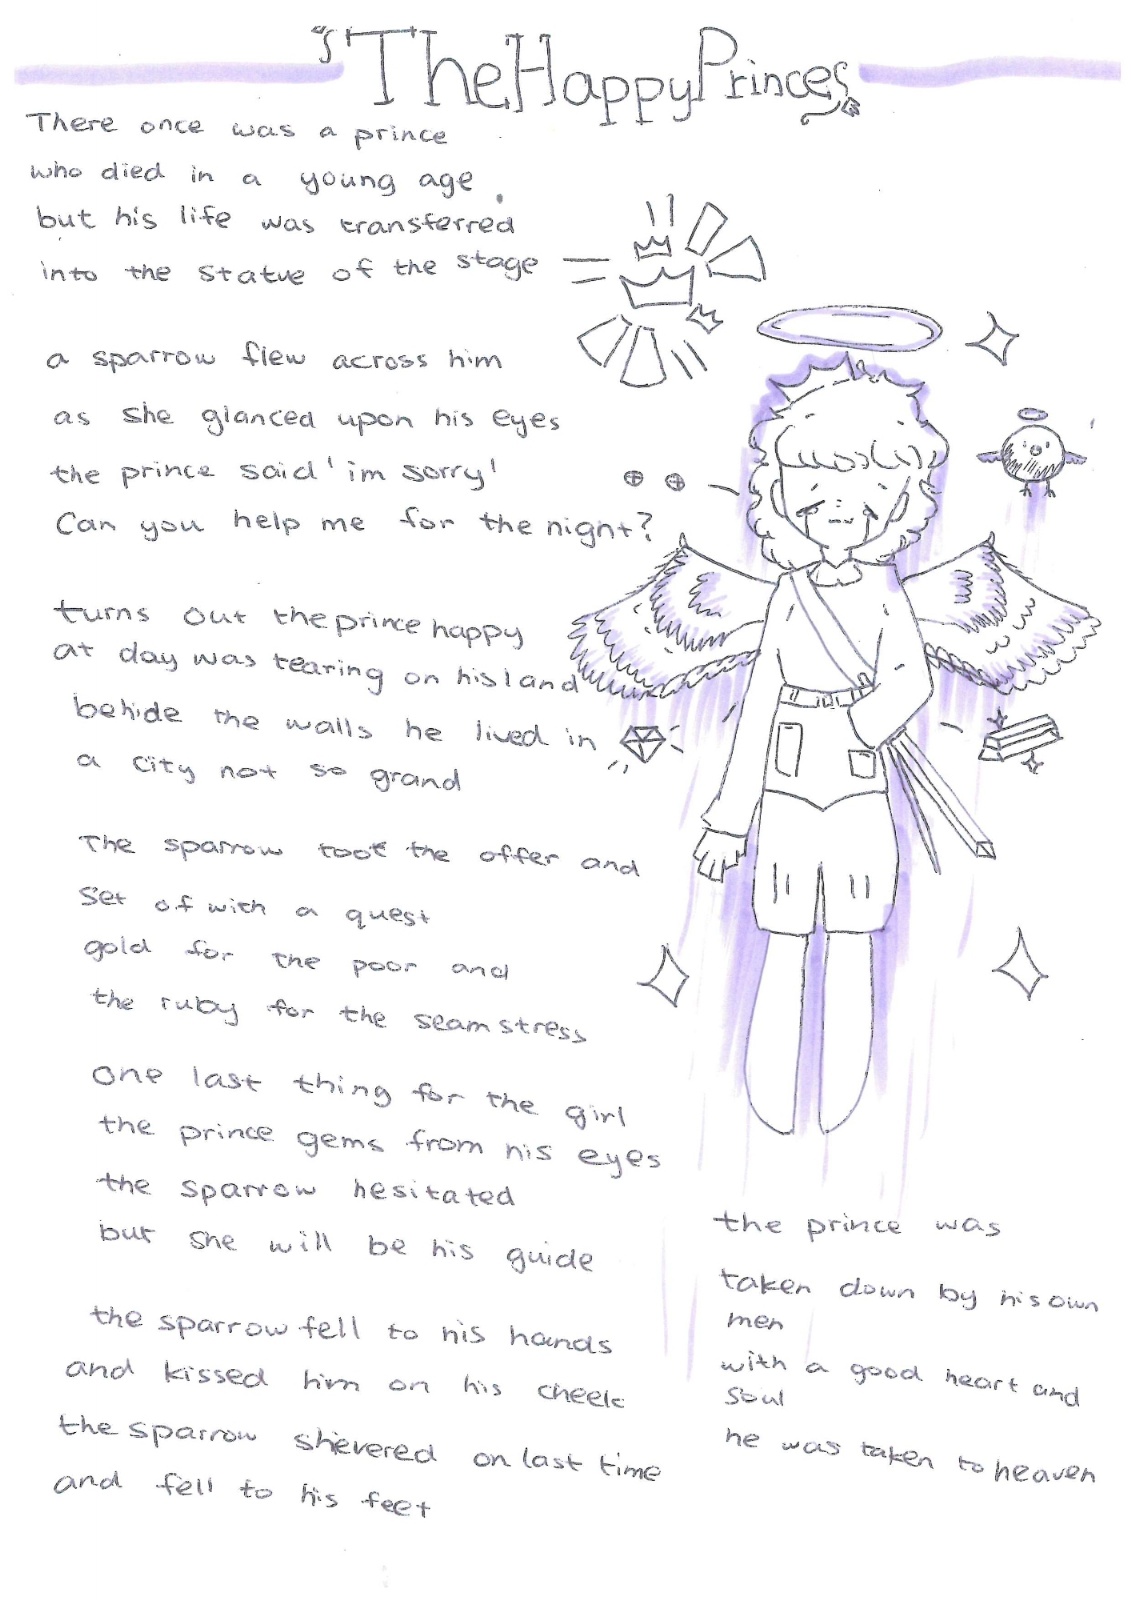 The Happy Princes
There once was a prince
who died in a young age
but his life was transferred
into the statue of the stage
a sparrow flew across him
as she glanced upon his eyes
the prince said 'im sorry'
Can you help me for the night?
turns out the prince happy
at day was tearing on his land
behide the walls he lived in
a city not so grand
The sparrow took the offer and
set of with a quest
gold for the poor and
the ruby for the seamstress
One last thing for the girl
the prince gems from his eyes
the sparrow hesitated
but she will be his guide
the sparrow fell to his hands
and kissed him on his cheek
the sparrow shevered on last time
and fell to his feet
the prince was
taken down by his own
men
with a good heart and
soul
he was taken to heaven